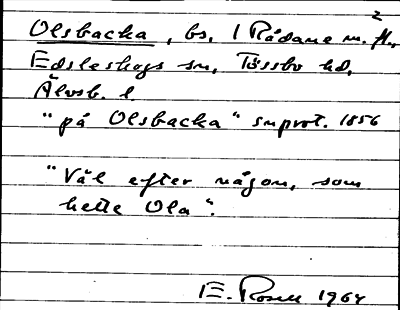 Olsbacka, bs, 1 Rådane m. fl.,
2
Edsleskogs sn, Tössbo hd,
Älvsb. l.
"på Olsbacka" snprot. 1856
"Väl efter någon, som
hette Ola".
E. Rosell 1964